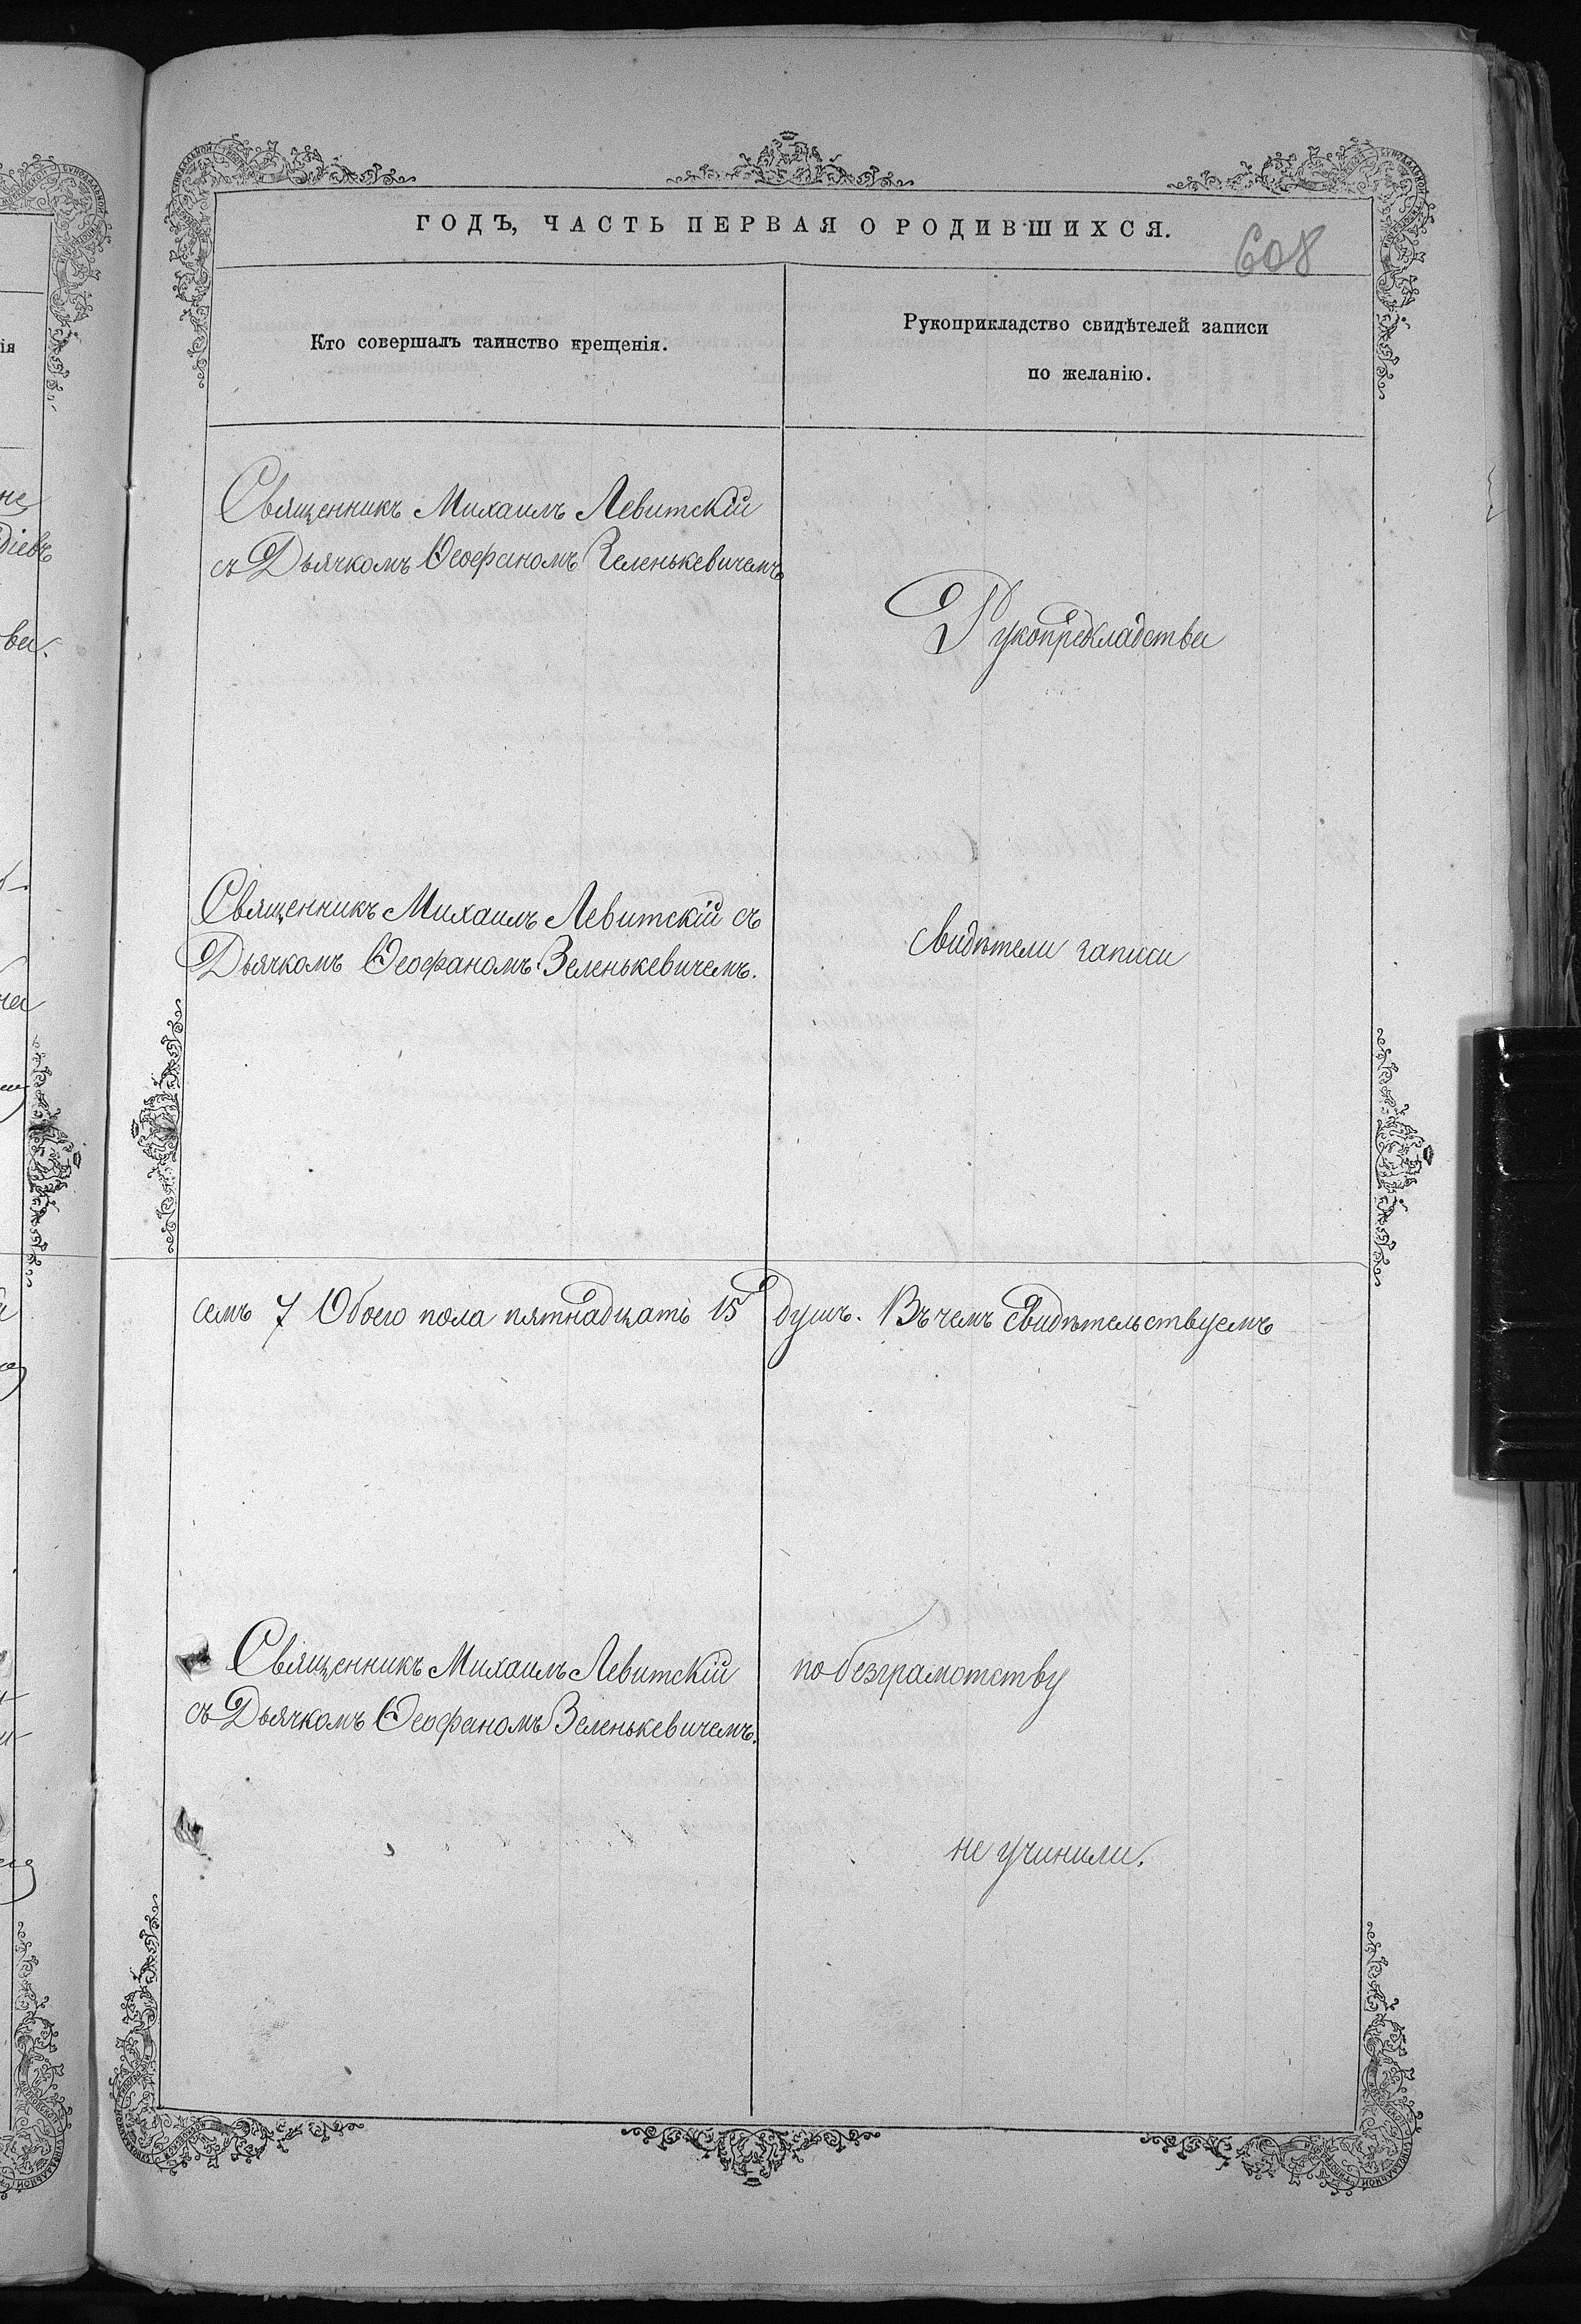 ГОДЪ, ЧАСТЬ ПЕРВАЯ О РОДИВШИХСЯ.
608
Кто совершалъ таинство крещенія.
Рукоприкладство свидѣтелей записи
по желанію.
Священникъ Михаилъ Левитскій
съ Дьячкомъ Ѳеофаномъ Зеленькевичемъ
Рукоприкладства
Священникъ Михаилъ Левитскій съ
Дьячкомъ Ѳеофаномъ Зеленькевичемъ.
свидѣтели записи
семъ 7 Обоего пола пятнадцать 15 душъ. Въ чемъ свидѣтельствуемъ
Священникъ Михаилъ Левитскій
съ Дьячкомъ Ѳеофаномъ Зеленькевичемъ.
по безграмотству
не учинили.